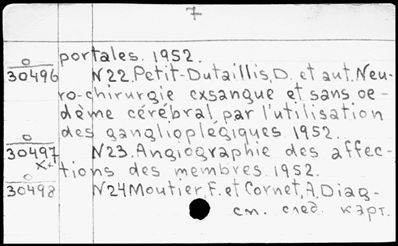 7
portales. 1952.
0
30496 N22. Petit-Dutaillis, D. et aut. Neu-
ro-chirurgie exsangue et sans oe-
dème cérébral par l'utilisation
des ganglioplegiques 1952.
0
30497 N23. Angiographie des affec-
x tions des membres. 1952.
0
30498 N24 Moutier, F. et Cornet, A. Diag-
см. след. карт.